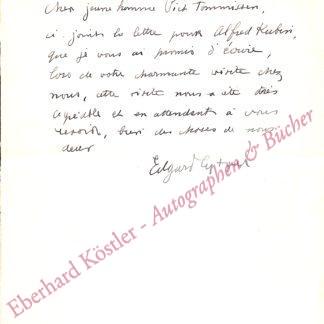 Cher jeune homme Piet Tommissen,
ci-joint la lettre pour Alfred Kubin,
que je vous ai promis d'écrire,
lors de votre charmante visite chez
nous, cette visite nous a été très
agréable et en attendant à vous
revoir, bien des choses de nous
deux
Edgard
Eberhard Köstler - Autographen & Bücher